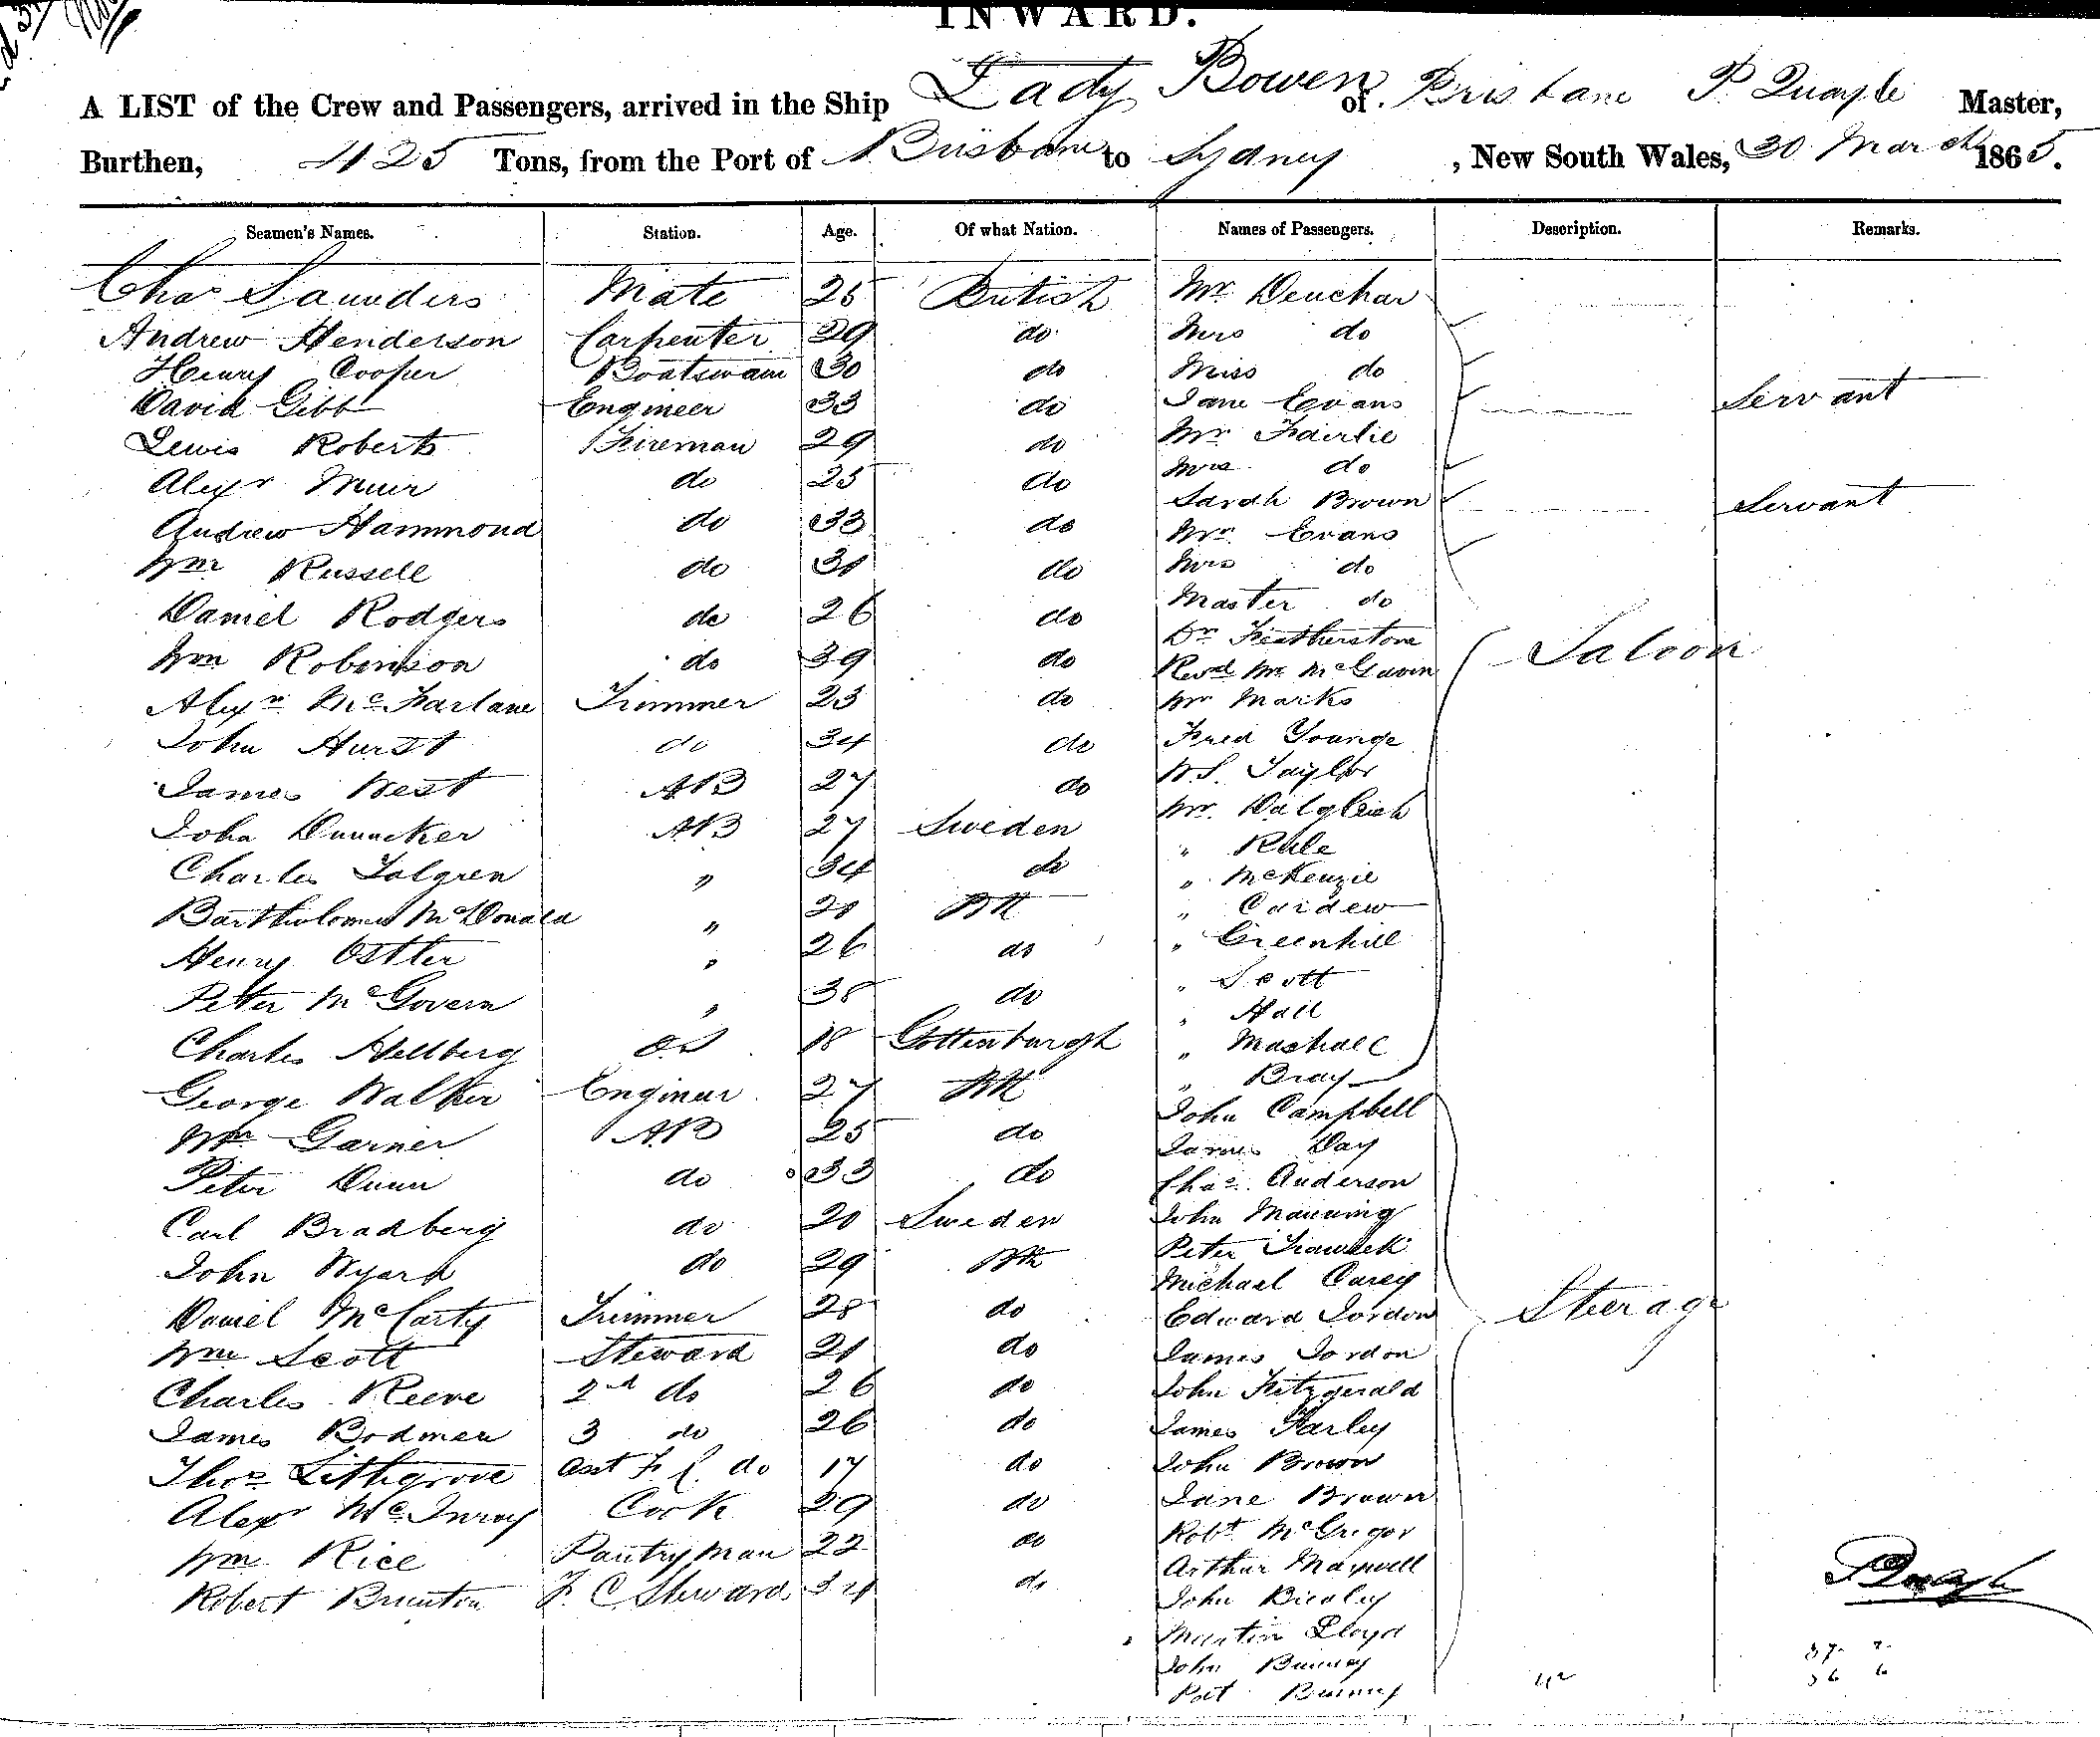 INWARD.
A LIST of the Crew and Passengers, arrived in the Ship Lady Bowen of Brisbane P. Quayle Master,
Burthen, 425 Tons, from the Port of Brisbane to Sydney, New South Wales, 30 March 1865.
Seamen's Names. Station. Age. Of what Nation. Names of Passengers. Description. Remarks.
Chas Saunders Mate 25 British Mr Deuchar
Andrew Henderson Carpenter 29 do Mrs do
Henry Cooper Boatswain 30 do Miss do
David Gibb Engineer 33 do Jane Evans Servant
Lewis Roberts Fireman 29 do Mr Fairlie
Alexr Muir do 25 do Mrs do
Sarah Brown Servant
Andrew Hammond do 33 do Mr Evans
Wm Russell do 31 do Mrs do
Daniel Rodgers do 26 do Master do
Dr Featherstone
Wm Robinson do 39 do Revd Mr McGavin Saloon
Alexr McFarlane Trimmer 23 do Mr Marks
John Hurst do 34 do Fred Younge
James West AB 27 do W.S. Taylor
Mr. Dalgleish
John AB 27 Sweden " Rule
Charles Tolgren " 34 do " McKenzie
Bartholomew McDonald " 28 BH " Cardew
Henry Ostler " 26 do " Greenhill
" Scott
Peter McGovern " 38 do " Hall
Charles Hellberg OS 18 Gottenburgh " Mashall
George Walker Engineer 27 BH " Bray
John Campbell
Wm Garner AB 25 do James Day
Peter Dunn do 33 do Chas. Anderson
Carl Bradberg do 20 Sweden John Manning
John Wyard do 29 BH Peter
Michael Carey
Daniel McCarty Trimmer 28 do Edward Jordon Steerage
Wm Scott Steward 21 do James Jordon
Charles Reeve 2nd do 26 do John Fitzgerald
James Bodmen 3 do 26 do James Farley
Thos Lithgrove asst F C do 17 do John Brown
Alexr McInroy Cook 29 do Jane Brown
Robt McGregor
Wm Rice Pantryman 22 do Arthur Maxwell
Robert Brunton F. C Steward 34 do John
Martin Lloyd
John
Pat
P Quayle